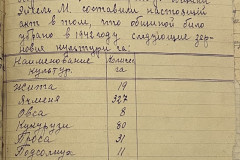 Янгель М. составили настоящий
акт в том, что общиной было
убрано в 1942 году следующие зер-
новые культури га:
Наименование культур. Количес. га
Жита 19
Ячменя 327
Овса 8
Кукурузи 80
Проса 31
Подсолнуха 11